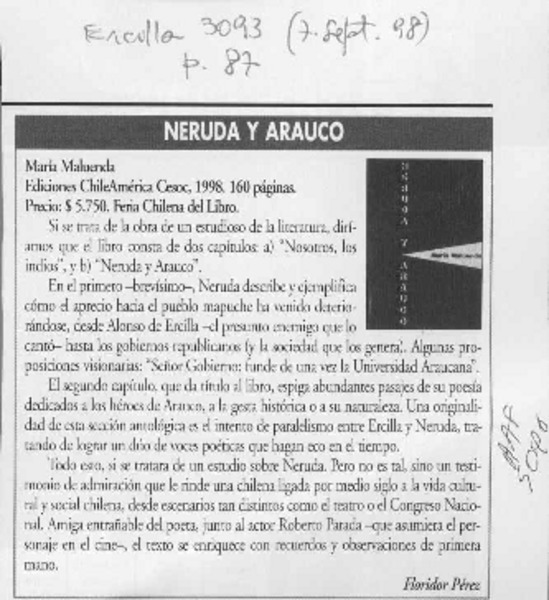 Ercilla 3093 (7. Sept. 98)
p. 87
NERUDA Y ARAUCO
María Maluenda
Ediciones ChileAmérica Cesoc, 1998. 160 páginas.
Precio: $ 5.750. Feria Chilena del Libro.
Si se trata de la obra de un estudioso de la literatura, diría-
amos que el libro consta de dos capítulos: a) "Nosotros, los
indios", y b) "Neruda y Arauco".
En el primero –brevísimo–, Neruda describe y ejemplifica
cómo el aprecio hacia el pueblo mapuche ha venido deterio-
rándose, desde Alonso de Ercilla –el presunto enemigo que lo
cantó– hasta los gobiernos republicanos (y la sociedad que los genera). Algunas pro-
posiciones visionarias: "Señor Gobierno: funde de una vez la Universidad Araucana".
El segundo capítulo, que da título al libro, espiga abundantes pasajes de su poesía
dedicados a los héroes de Arauco, a la gesta histórica o a su naturaleza. Una originali-
dad de esta sección antológica es el intento de paralelismo entre Ercilla y Neruda, tra-
tando de lograr un dúo de voces poéticas que hagan eco en el tiempo.
Todo esto, si se tratara de un estudio sobre Neruda. Pero no es tal, sino un testi-
monio de admiración que le rinde una chilena ligada por medio siglo a la vida cultu-
ral y social chilena, desde escenarios tan distintos como el teatro o el Congreso Nacio-
nal. Amiga entrañable del poeta, junto al actor Roberto Parada –que asumiera el per-
sonaje en el cine–, el texto se enriquece con recuerdos y observaciones de primera
mano.
Floridor Pérez
NERUDA Y ARAUCO
María Maluenda
AAF